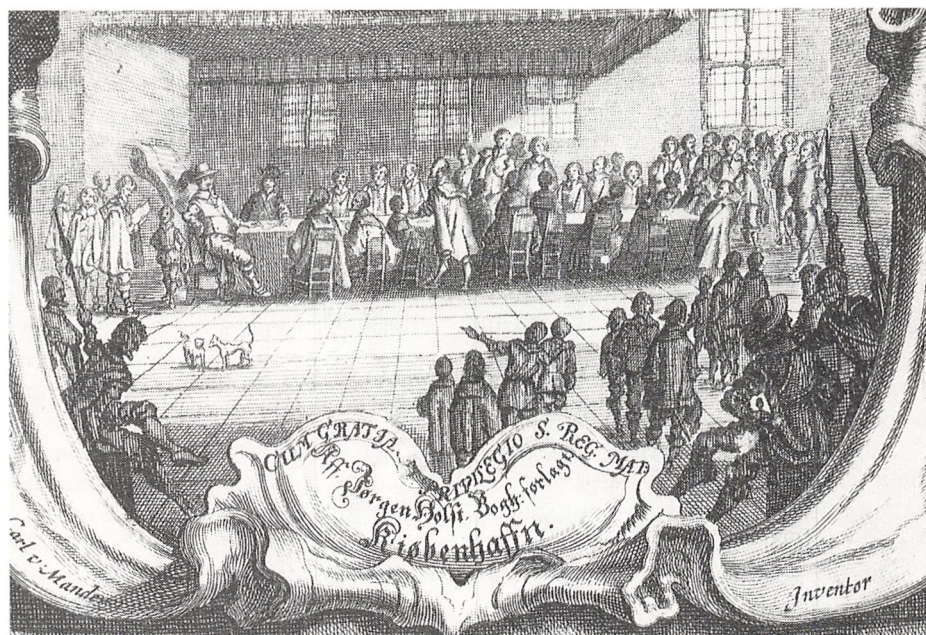 CUM GRATIA. PRIVILEGIO S. REG. MAI.
Aff Jørgen Holst, Bogh. forlagt
Kiøbenhaffn.
Carl v Mander
Inventor